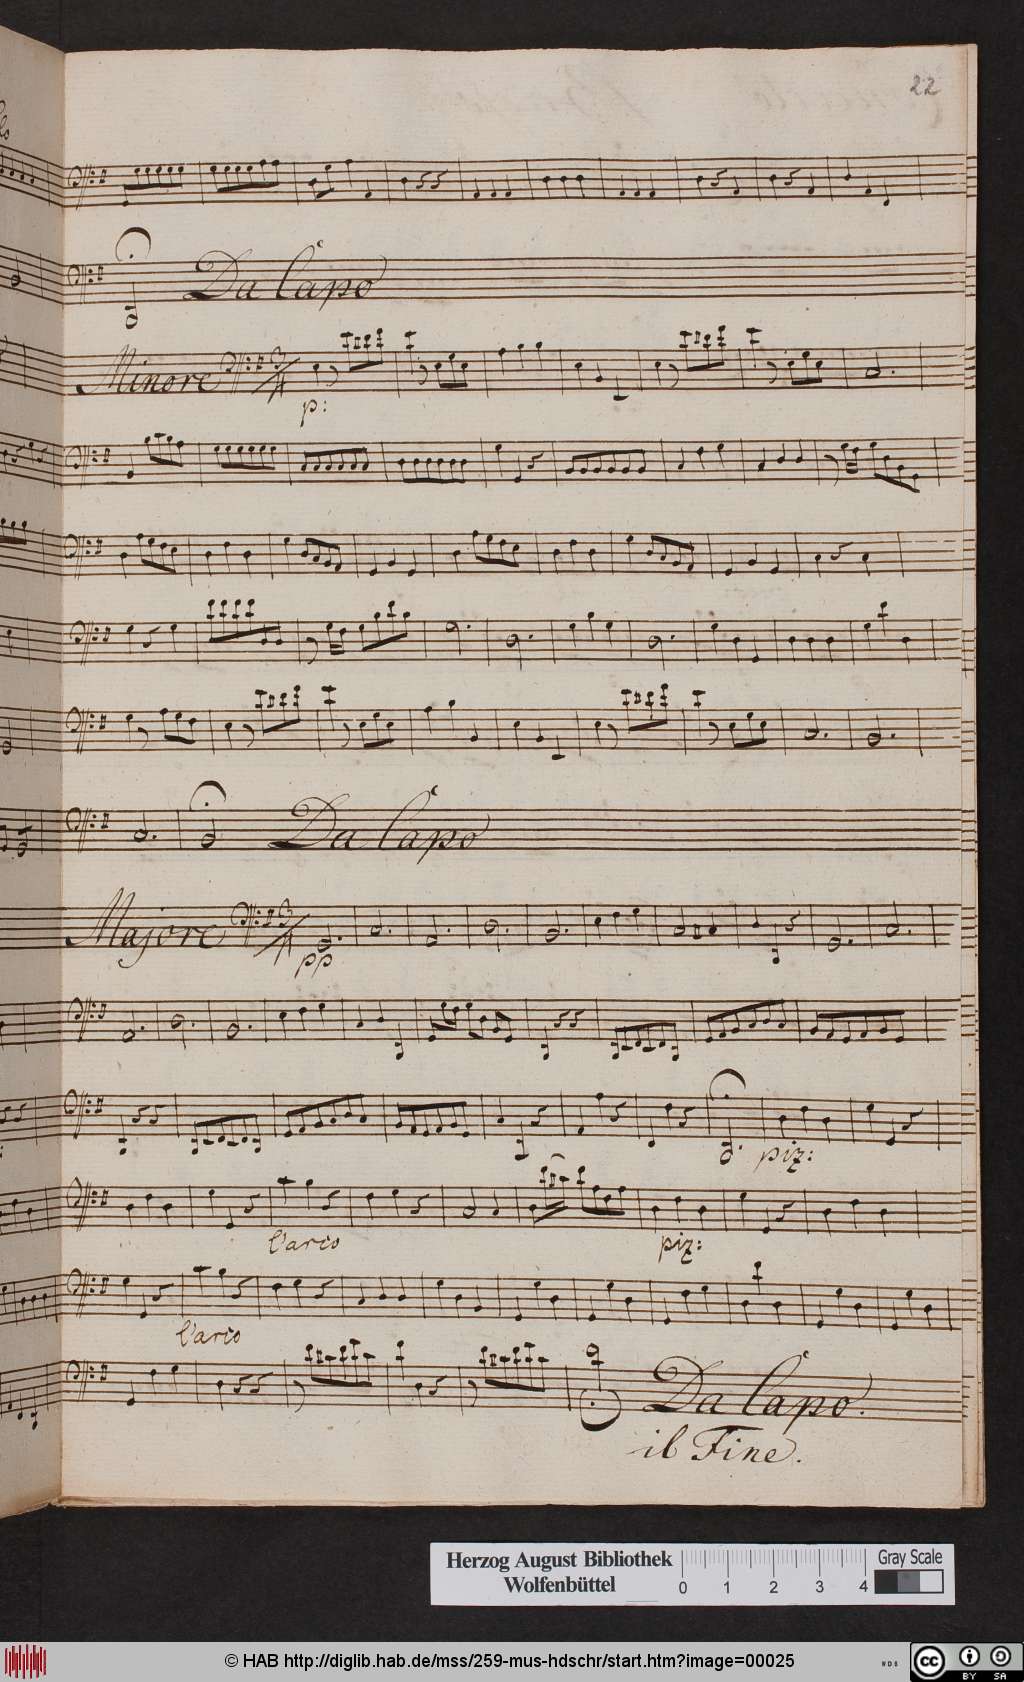 22
Da Capo
Minore 3/4
p:
Da Capo
Majore 3/4
pp
piz:
l'arco
piz:
l'arco
Da Capo.
il Fine.
Herzog August Bibliothek
Wolfenbüttel
0 1 2 3 4
Gray Scale
© HAB http://diglib.hab.de/mss/259-mus-hdschr/start.htm?image=00025
WDB
CC BY SA